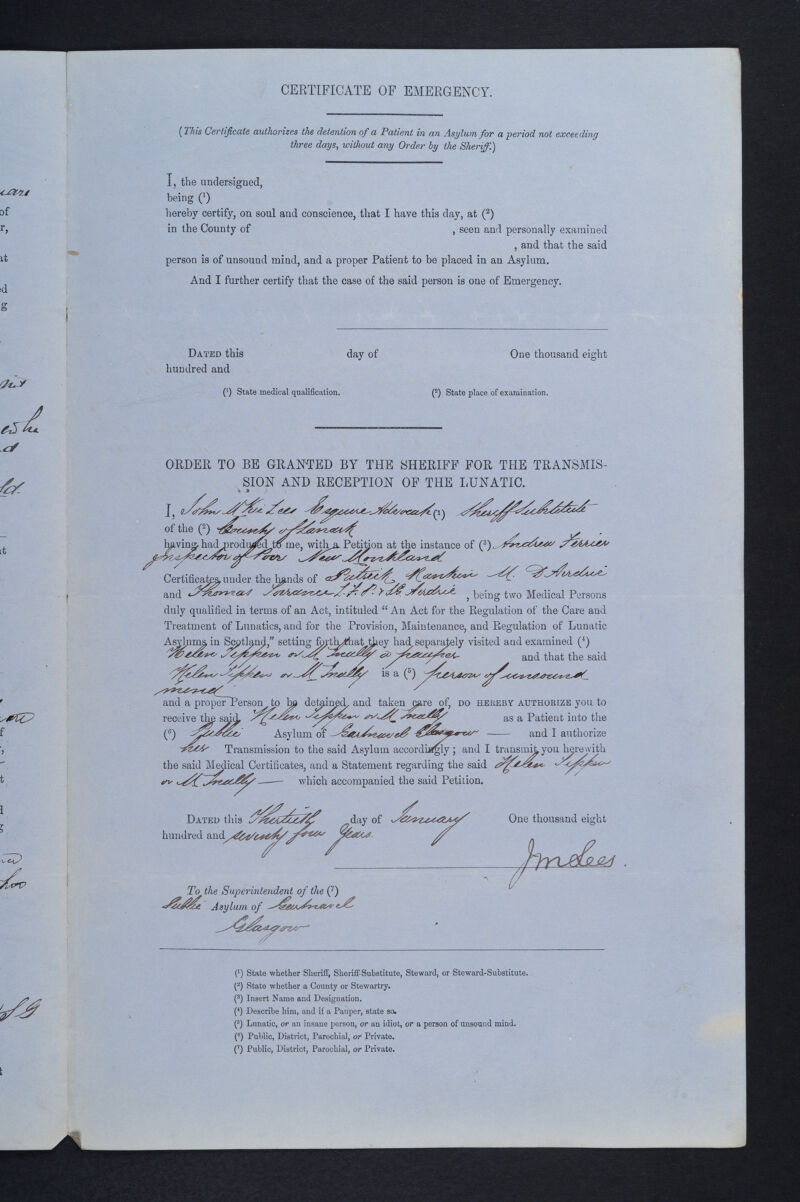 CERTIFICATE OF EMERGENCY.
(This Certificate authorizes the detention of a Patient in an Asylum for a period not exceeding
three days, without any Order by the Sheriff.)
I, the undersigned,
being (¹)
hereby certify, on soul and conscience, that I have this day, at (²)
in the County of , seen and personally examined
, and that the said
person is of unsound mind, and a proper Patient to be placed in an Asylum.
And I further certify that the case of the said person is one of Emergency.
DATED this day of One thousand eight
hundred and
(¹) State medical qualification. (²) State place of examination.
ORDER TO BE GRANTED BY THE SHERIFF FOR THE TRANSMIS-
SION AND RECEPTION OF THE LUNATIC.
I, John McKie Lees Esquire Advocate (1) Sheriff Substitute
of the (²) County of Lanark
having had produced to me, with a Petition at the instance of (³). Andrew Ferrier
Inspector of Poor New Monkland
Certificates under the hands of Patrick Rankin M.D Airdrie
and Thomas Torrance L.F.P. & S. Airdrie , being two Medical Persons
duly qualified in terms of an Act, intituled "An Act for the Regulation of the Care and
Treatment of Lunatics, and for the Provision, Maintenance, and Regulation of Lunatic
Asylums in Scotland," setting forth that they had separately visited and examined (⁴)
Helen or a pauper and that the said
Helen or is a (⁵) person of unsound
mind
and a proper Person to be detained and taken care of, DO HEREBY AUTHORIZE you to
receive the said Helen or as a Patient into the
(⁶) Public Asylum of Gartnavel Glasgow — and I authorize
her Transmission to the said Asylum accordingly; and I transmit you herewith
the said Medical Certificates, and a Statement regarding the said Helen
or — which accompanied the said Petition.
DATED this Thirtieth day of January One thousand eight
hundred and seventy four Years.
JMcLees.
To the Superintendent of the (⁷)
Public Asylum of Gartnavel
Glasgow
(¹) State whether Sheriff, Sheriff-Substitute, Steward, or Steward-Substitute.
(²) State whether a County or Stewartry.
(³) Insert Name and Designation.
(⁴) Describe him, and if a Pauper, state so.
(⁵) Lunatic, or an insane person, or an idiot, or a person of unsound mind.
(⁶) Public, District, Parochial, or Private.
(⁷) Public, District, Parochial, or Private.